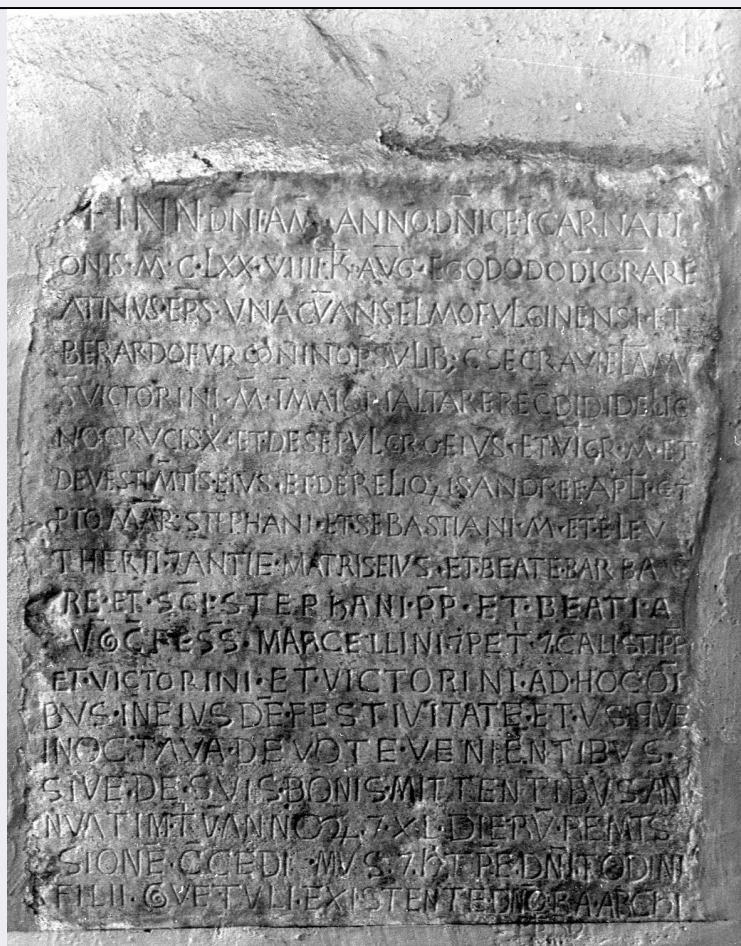 IN N DNI AM ANNO DNICE ICARNATI
ONIS · M · C · LXX · VIIII · K · AVG · EGO DODO DI GRA RE
ATINVS · EPS · VNA CV ANSELMO FVLGINENSI · ET
BERARDO FVRCONIN
S VICTORINI · M · I MAIORI ALTARE RECDIDI DE LIG
NO CRVCIS X · ET DE SEPVLCRO EIVS · ET VIGR · M · ET
DE VESTIMTIS EIVS · ET DE RELIQIS ANDREE APLI · ET
PTOMAR · STEPHANI · ET SEBASTIANI · M · ET ELEV
THERII · 7 ANTIE · MATRIS EIVS · ET BEATE · BARBA
RE · ET · SCI · STEPHANI · PP · ET · BEATI · A
VG CFESS · MARCELLINI · 7 PET · 7 CALISTI PP
ET · VICTORINI · ET · VICTORINI · AD · HOC OI
BVS · IN EIVS DE · FESTIVITATE · ET · VSQVE
IN OCTAVA · DEVOTE · VENIENTIBVS ·
SIVE · DE · SVIS BONIS MITTENTIBVS · AN
NVATIM · T · V ANNO 7 · XL · DIERV · REMIS
SIONE · CCEDIMVS · 7 · HT PE · DNI TODINI
FILII · GVETVLI · EXISTENTE DNO RA ARCHI